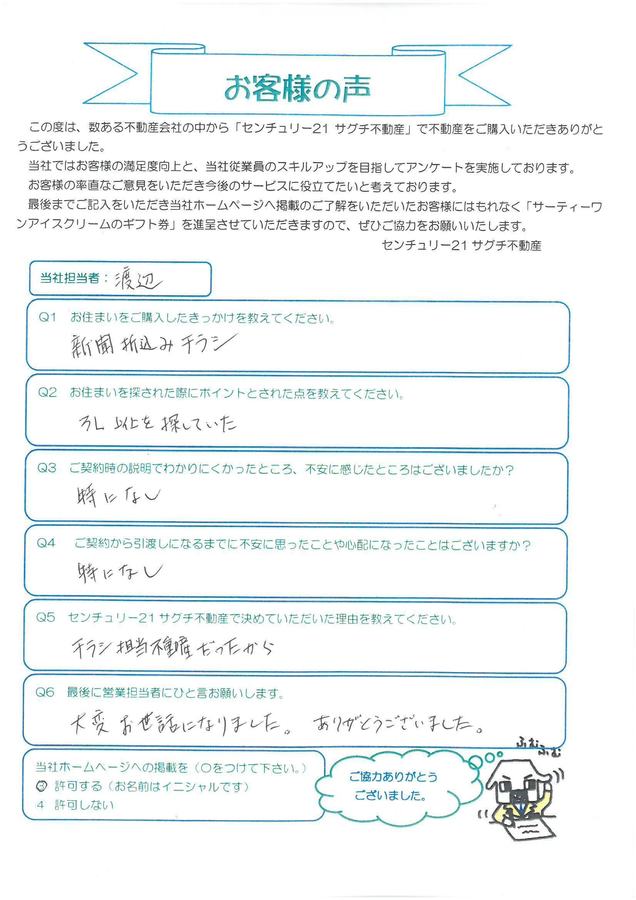 お客様の声
この度は、数ある不動産会社の中から「センチュリー21 サグチ不動産」で不動産をご購入いただきありがと
うございました。
当社ではお客様の満足度向上と、当社従業員のスキルアップを目指してアンケートを実施しております。
お客様の率直なご意見をいただき今後のサービスに役立てたいと考えております。
最後までご記入をいただき当社ホームページへ掲載のご了解をいただいたお客様にはもれなく「サーティーワ
ンアイスクリームのギフト券」を進呈させていただきますので、ぜひご協力をお願いいたします。
センチュリー21 サグチ不動産
当社担当者：渡辺
Q1 お住まいをご購入したきっかけを教えてください。
新聞折込みチラシ
Q2 お住まいを探された際にポイントとされた点を教えてください。
3L以上を探していた
Q3 ご契約時の説明でわかりにくかったところ、不安に感じたところはございましたか？
特になし
Q4 ご契約から引渡しになるまでに不安に思ったことや心配になったことはございますか？
特になし
Q5 センチュリー21サグチ不動産で決めていただいた理由を教えてください。
チラシ担当不動産だったから
Q6 最後に営業担当者にひと言お願いします。
大変お世話になりました。 ありがとうございました。
当社ホームページへの掲載を（〇をつけて下さい。）
許可する（お名前はイニシャルです）
4 許可しない
ご協力ありがとう
ございました。
ふむふむ